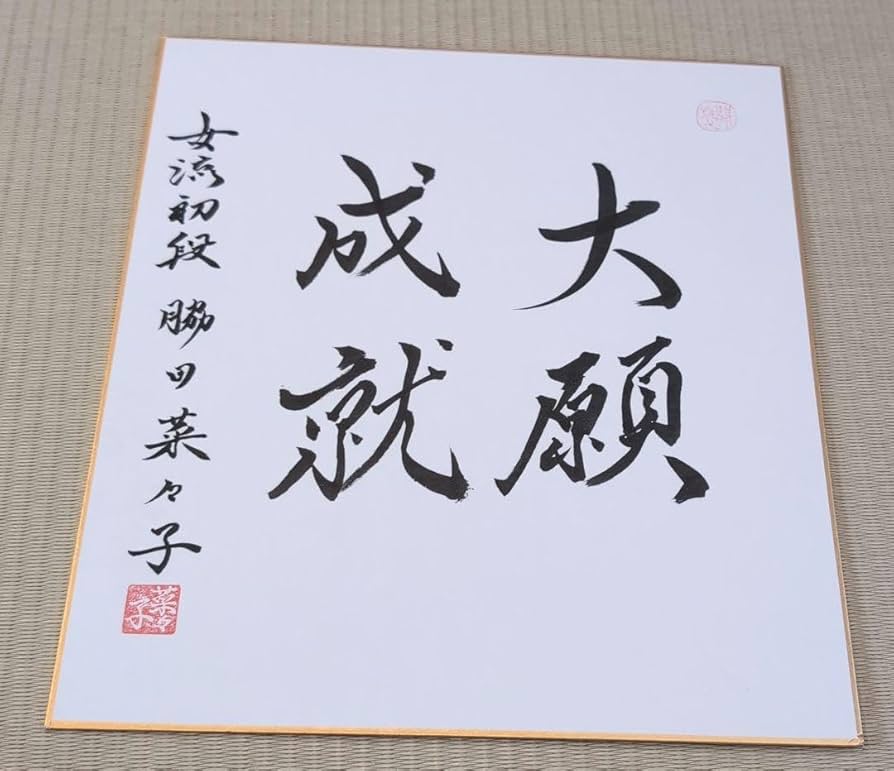 大願
成就
女流初段 脇田菜々子
菜々子